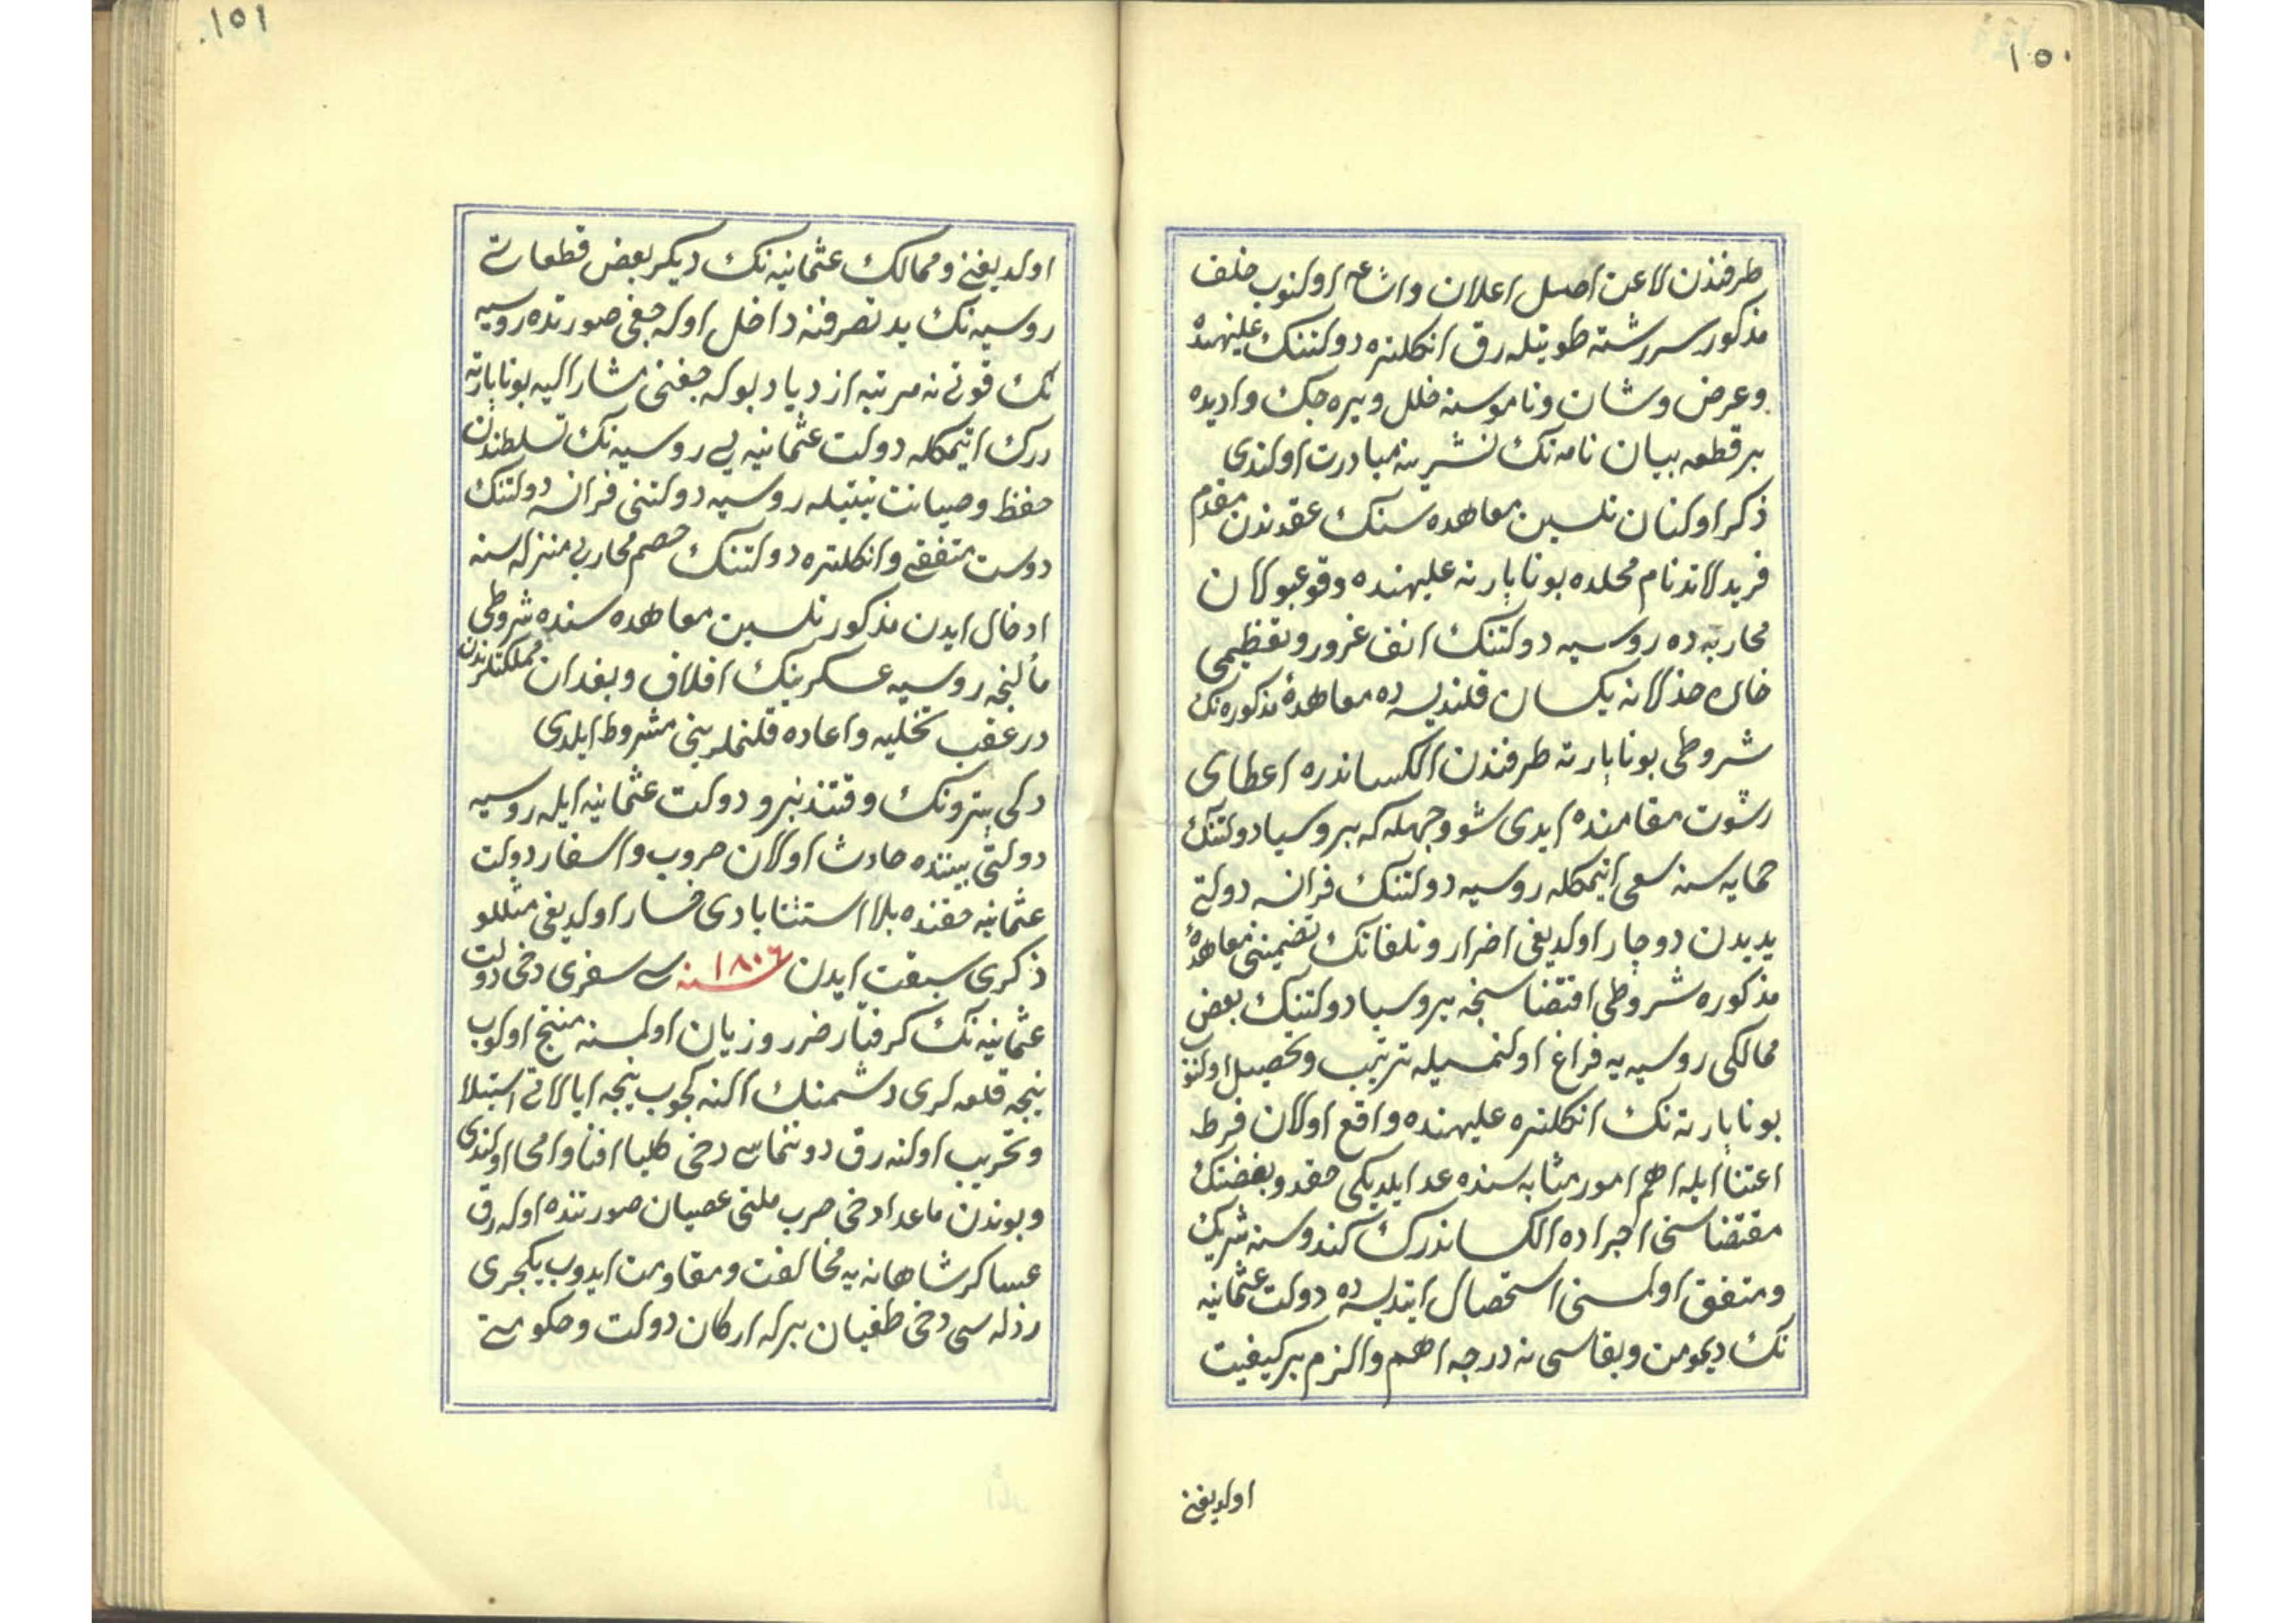 ١٥٠
طرفندن لاعن اصل اعلان واشاعه اولنوب خلف
مذكور سررشته طويتله رق انكلتره دولتنك علیهنده
وعرض وشان وناموسنه خلل ويره جك واديده
بر قطعه بيان نامه نك نشرينه مبادرت اولندى
ذكر اولنان تلسين معاهده سنك عقدندن مقدم
فريدلاند نام محلده بوناپارته عليهنده وقوعبولان
محاربه ده روسيه دولتنك انف غرور وتعظيمى
خاك خذلانه يكسان قلنديسه ده معاهدهٔ مذكوره نك
شروطى بوناپارته طرفندن الكساندره اعطاى
رشوت مقامنده ايدى شو وجهله كه پروسيا دولتنك
حمايه سنه سعى ايتمكله روسيه دولتنك فرانسه دولتى
يديدن دوچار اولديغى اضرار وتلفاتك تضمينى معاهدهٔ
مذكوره شروطى اقتضاسنجه پروسيا دولتنك بعض
ممالكى روسيه يه فراغ اولنمسيله ترتيب وتحصيل اولنوب
بوناپارته نك انكلتره عليهنده واقع اولان فرط
اعتنا ايله اهم امور مثابه سنده عد ايلديكى حقد وبغضنك
مقتضاسنى اجراده الكساندرك كندوسنه شريك
ومتفق اولمسنى استحصال ايتديسه ده دولت عثمانيه
نك ديمومت وبقاسى نه درجه اهم والزم بر كيفيت
اولديغنى
١٥١
اولديغنى وممالك عثمانيه نك ديكر بعض قطعاتى
روسيه نك يد تصرفنه داخل اوله جغى صورتده روسيه
نك قوتى نه مرتبه ازدياد بوله جغنى مشار اليه بوناپارته
درك ايتمكله دولت عثمانيه يى روسيه نك تسلطندن
حفظ وصيانت نيتيله روسيه دولتنى فرانسه دولتنك
دوست متفقى وانكلتره دولتنك خصم محاربى منزله سنه
ادخال ايدن مذكور تلسين معاهده سنده شروطى
مألنجه روسيه عسكرينك افلاق وبغدان مملكتلرندن
در عقب تخليه واعاده قلنملرينى مشروط ايلدى
دلى پترونك وقتندنبرو دولت عثمانيه ايله روسيه
دولتى بيننده حادث اولان حروب واسفار دولت
عثمانيه حقنده بلا استثنا بادى خسار اولديغى مثللو
ذكرى سبقت ايدن ١٨٠٦ سنه سى سفرى دخى دولت
عثمانيه نك كرفتار ضرر وزيان اولمسنه منتج اولوب
نيجه قلعه لرى دشمنك النه كچوب نيجه ايالاتى استيلا
وتخريب اولنه رق دوننماسى دخى كليا افنا وامحا اولندى
وبوندن ماعدا دخى صرب ملتى عصيان صورتنده اوله رق
عساكر شاهانه يه مخالفت ومقاومت ايدوب يكيچرى
رذله سى دخى طغيان برله اركان دولت وحكومتى